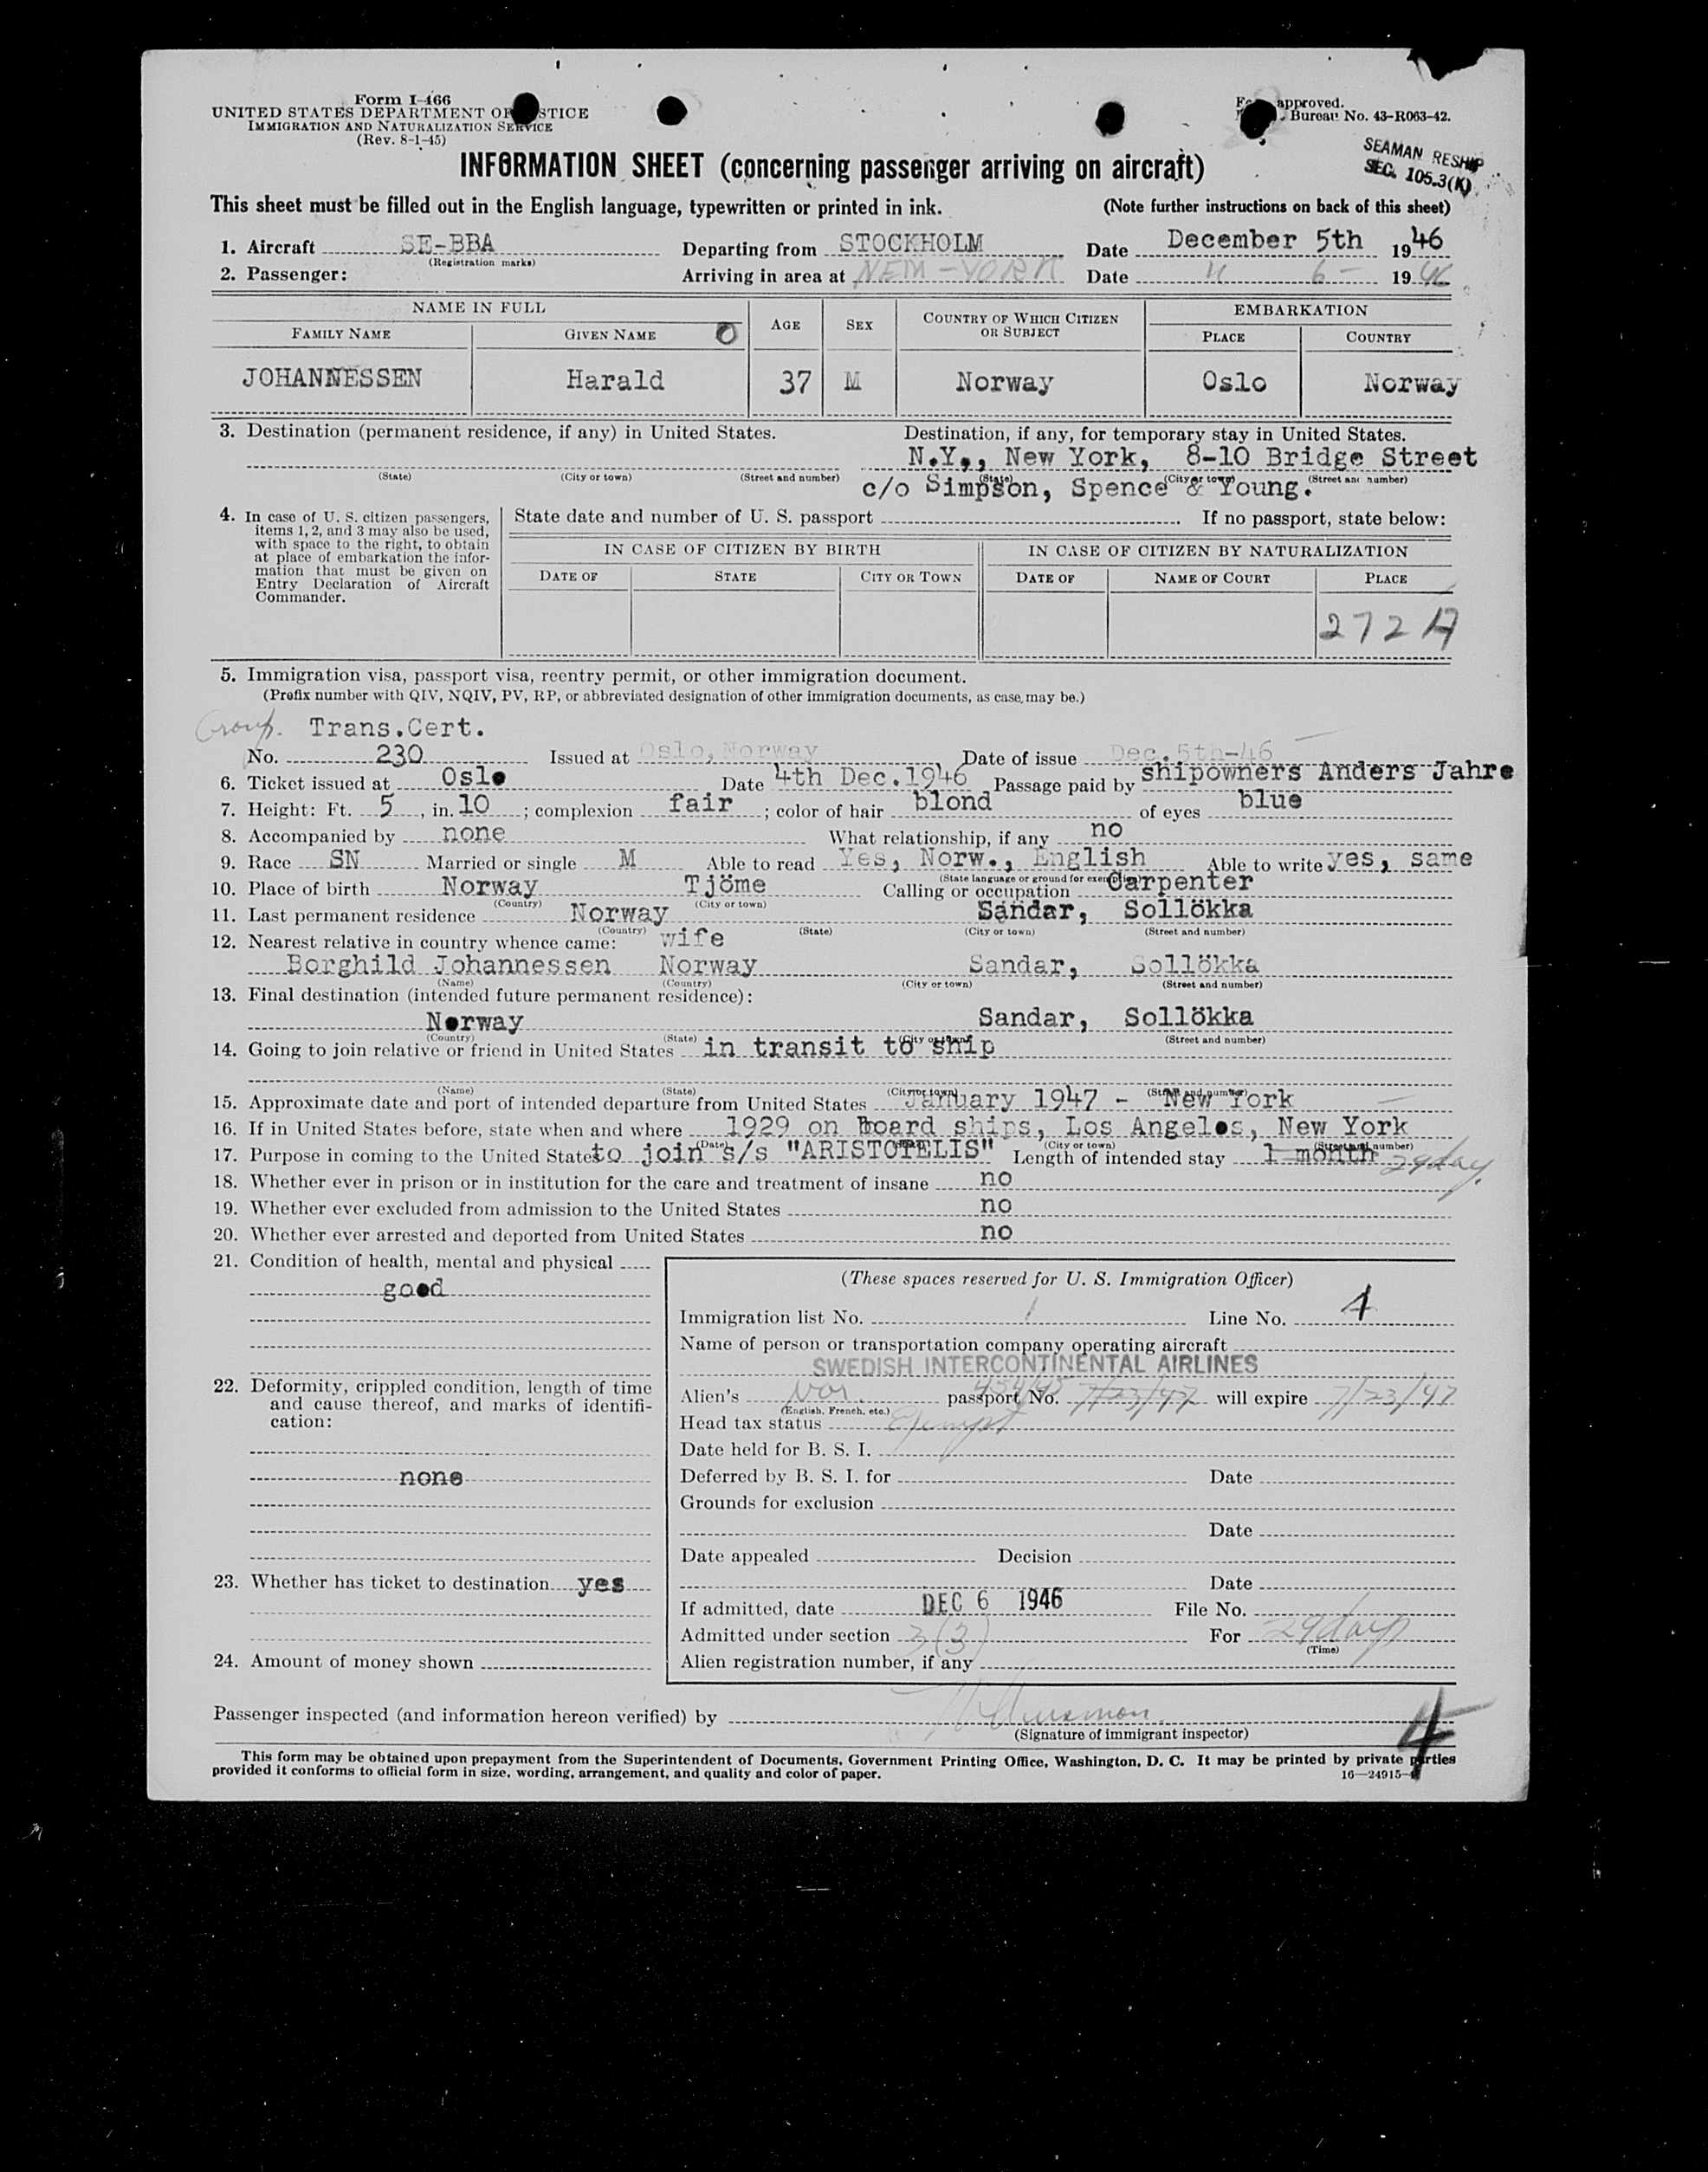 Form I-466
UNITED STATES DEPARTMENT OF JUSTICE
IMMIGRATION AND NATURALIZATION SERVICE
(Rev. 8-1-45)
approved.
Bureau No. 43-R063-42.
SEAMAN RESHIP
SEC. 105.3(K)
INFORMATION SHEET (concerning passenger arriving on aircraft)
This sheet must be filled out in the English language, typewritten or printed in ink. (Note further instructions on back of this sheet)
1. Aircraft SE-BBA Departing from STOCKHOLM Date December 5th 1946
(Registration marks)
2. Passenger: Arriving in area at NEW-YORK Date " 6- 1946
NAME IN FULL AGE SEX COUNTRY OF WHICH CITIZEN OR SUBJECT EMBARKATION
FAMILY NAME GIVEN NAME PLACE COUNTRY
JOHANNESSEN Harald 37 M Norway Oslo Norway
3. Destination (permanent residence, if any) in United States. Destination, if any, for temporary stay in United States.
N.Y., New York, 8-10 Bridge Street
(State) (City or town) (Street and number) (State) (City or town) (Street and number)
c/o Simpson, Spence & Young.
4. In case of U. S. citizen passengers, items 1, 2, and 3 may also be used, with space to the right, to obtain at place of embarkation the information that must be given on Entry Declaration of Aircraft Commander.
State date and number of U. S. passport . If no passport, state below:
IN CASE OF CITIZEN BY BIRTH IN CASE OF CITIZEN BY NATURALIZATION
DATE OF STATE CITY OR TOWN DATE OF NAME OF COURT PLACE
272
5. Immigration visa, passport visa, reentry permit, or other immigration document.
(Prefix number with QIV, NQIV, PV, RP, or abbreviated designation of other immigration documents, as case may be.)
Group. Trans.Cert.
No. 230 Issued at Oslo, Norway Date of issue Dec. 5th-46
6. Ticket issued at Oslo Date 4th Dec.1946 Passage paid by shipowners Anders Jahre
7. Height: Ft. 5, in. 10; complexion fair; color of hair blond of eyes blue
8. Accompanied by none What relationship, if any no
9. Race SN Married or single M Able to read Yes, Norw., English Able to write yes, same
(State language or ground for exemption)
10. Place of birth Norway Tjöme Calling or occupation Carpenter
(Country) (City or town)
11. Last permanent residence Norway Sandar, Sollökka
(Country) (State) (City or town) (Street and number)
12. Nearest relative in country whence came: wife
Borghild Johannessen Norway Sandar, Sollökka
(Name) (Country) (City or town) (Street and number)
13. Final destination (intended future permanent residence):
Norway Sandar, Sollökka
(Country) (State) (City or town) (Street and number)
14. Going to join relative or friend in United States in transit to ship
(Name) (State) (City or town) (Street and number)
15. Approximate date and port of intended departure from United States January 1947 - New York
16. If in United States before, state when and where 1929 on board ships, Los Angeles, New York
(Date) (State) (City or town) (Street and number)
17. Purpose in coming to the United States to join s/s "ARISTOTELIS" Length of intended stay 1 month 29 day.
18. Whether ever in prison or in institution for the care and treatment of insane no
19. Whether ever excluded from admission to the United States no
20. Whether ever arrested and deported from United States no
21. Condition of health, mental and physical
good
22. Deformity, crippled condition, length of time and cause thereof, and marks of identification:
none
23. Whether has ticket to destination yes
24. Amount of money shown
(These spaces reserved for U. S. Immigration Officer)
Immigration list No. 1 Line No. 4
Name of person or transportation company operating aircraft
SWEDISH INTERCONTINENTAL AIRLINES
Alien's Nor. passport No. 7/23/47 will expire 7/23/47
(English, French, etc.)
Head tax status Exempt
Date held for B. S. I.
Deferred by B. S. I. for Date
Grounds for exclusion
Date
Date appealed Decision
Date
If admitted, date DEC 6 1946 File No.
Admitted under section 3(3) For 29 days
(Time)
Alien registration number, if any
Passenger inspected (and information hereon verified) by
(Signature of immigrant inspector)
4
This form may be obtained upon prepayment from the Superintendent of Documents, Government Printing Office, Washington, D. C. It may be printed by private parties
provided it conforms to official form in size, wording, arrangement, and quality and color of paper. 16—24915